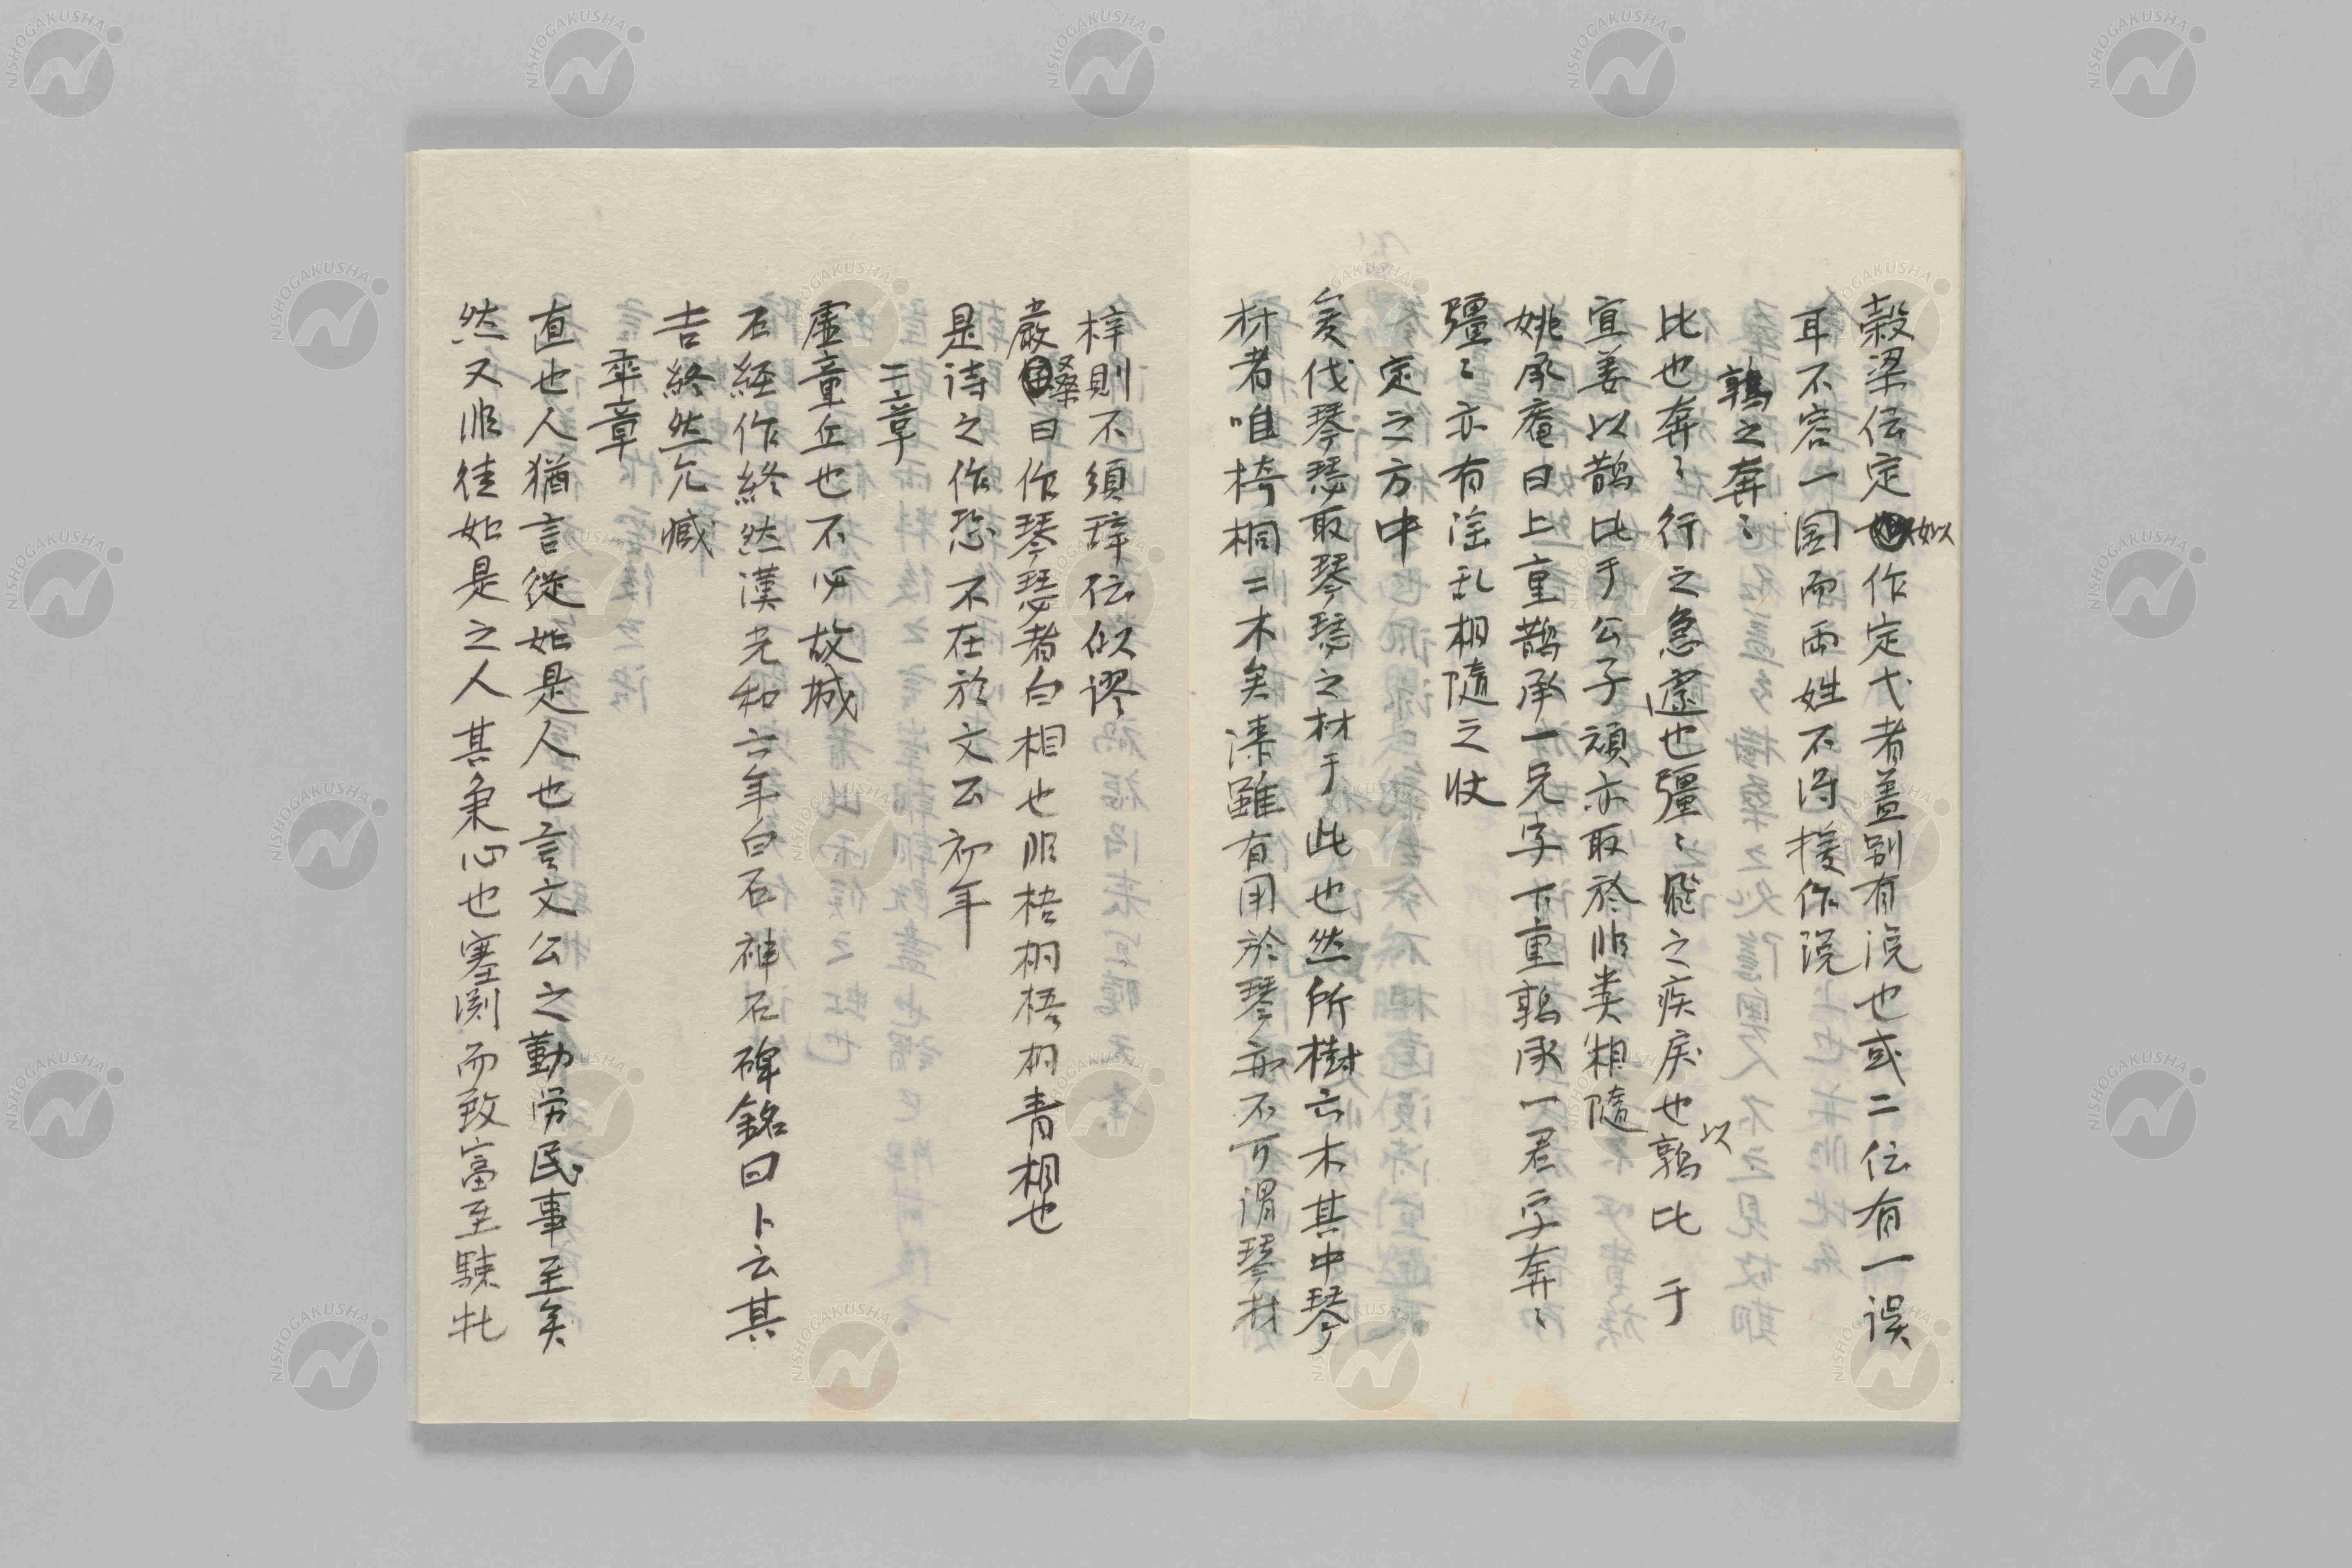 穀梁伝定姒作定弋者蓋別有説也或二伝有一誤
耳不容一国而両姓不得援作説
鶉之奔〻
比也奔〻行之急遽也彊〻飛之疾戻也以鶉比于
宜姜以鵲比于公子頑亦取於非類相随
姚承庵曰上章鵲承一兄字下章鶉承一君字奔〻
彊〻亦有淫乱相随之状
定之方中
爰伐琴瑟取琴瑟之材于此也然所樹六木其中琴
材者唯椅桐二木矣漆雖有用於琴亦不可謂琴材
梓則不須辞伝似謬
厳粲曰作琴瑟者白桐也非梧桐梧桐青桐也
是詩之作恐不在於文公初年
二章
虚章丘也不必故城
石経作終然漢光和六年白石神石碑銘曰卜云其
吉終然允臧
卒章
直也人猶言従如是人也言文公之勤労民事至矣
然又非徒如是之人其秉心也塞淵而致富至騋牝